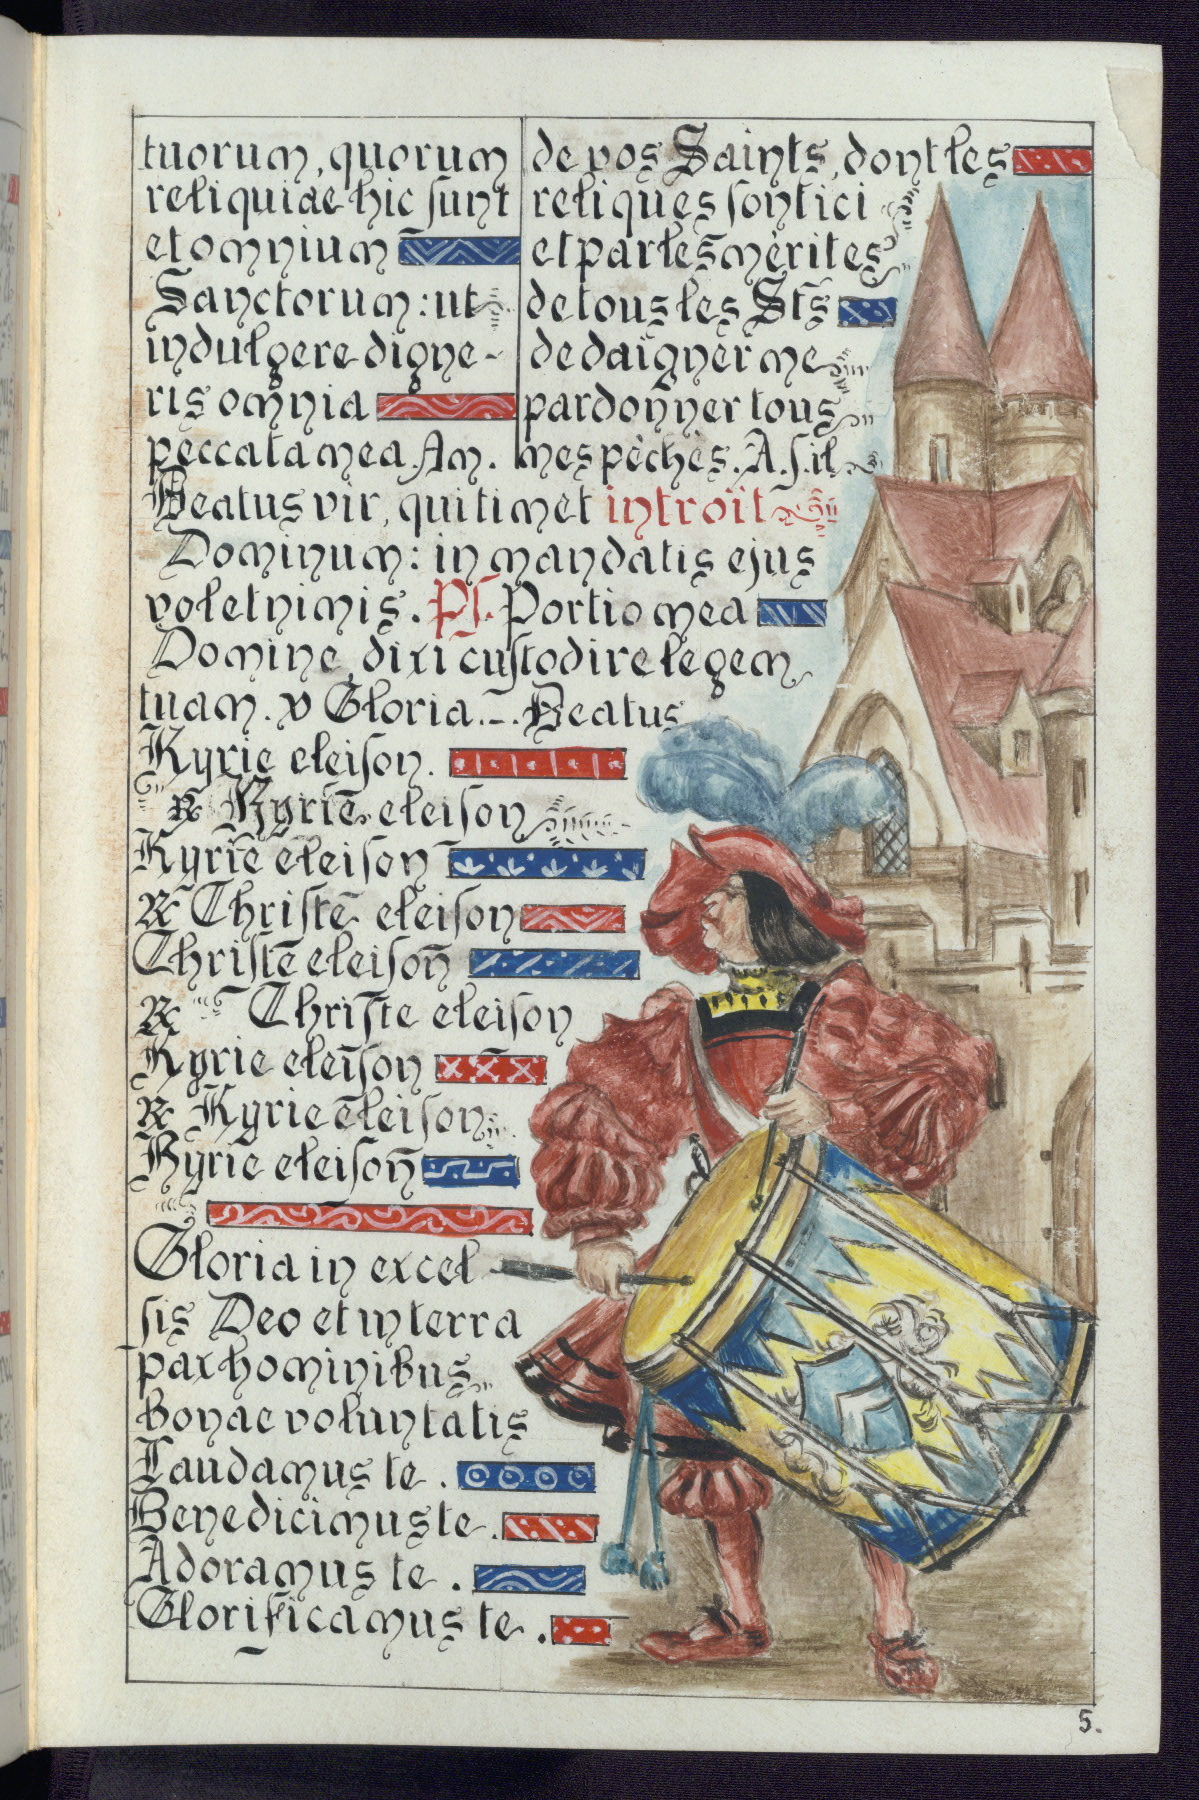 tuorum, quorum
reliquiae hic sunt
et omnium
Sanctorum : ut
indulgere digne-
ris omnia
peccata mea. Am.
de vos Saints, dont les
reliques sont ici
et par les mèrites
de tous les Sts
de daigner me
pardonner tous
mes pèchès. A. s. il
Beatus vir, qui timet introït
Dominum : in mandatis ejus
volet nimis. Ps. Portio mea
Domine, dixi custodire legem
tuam. V Gloria. -. Beatus
Kyrie eleison.
R Kyrie eleison
Kyrie eleison
R Christe eleison
Christe eleison
R Christe eleison
Kyrie eleison
R Kyrie eleison
Kyrie eleison
Gloria in excel
sis Deo et in terra
pax hominibus
bonae voluntatis
Laudamus te .
Benedicimus te .
Adoramus te .
Glorificamus te .
5.